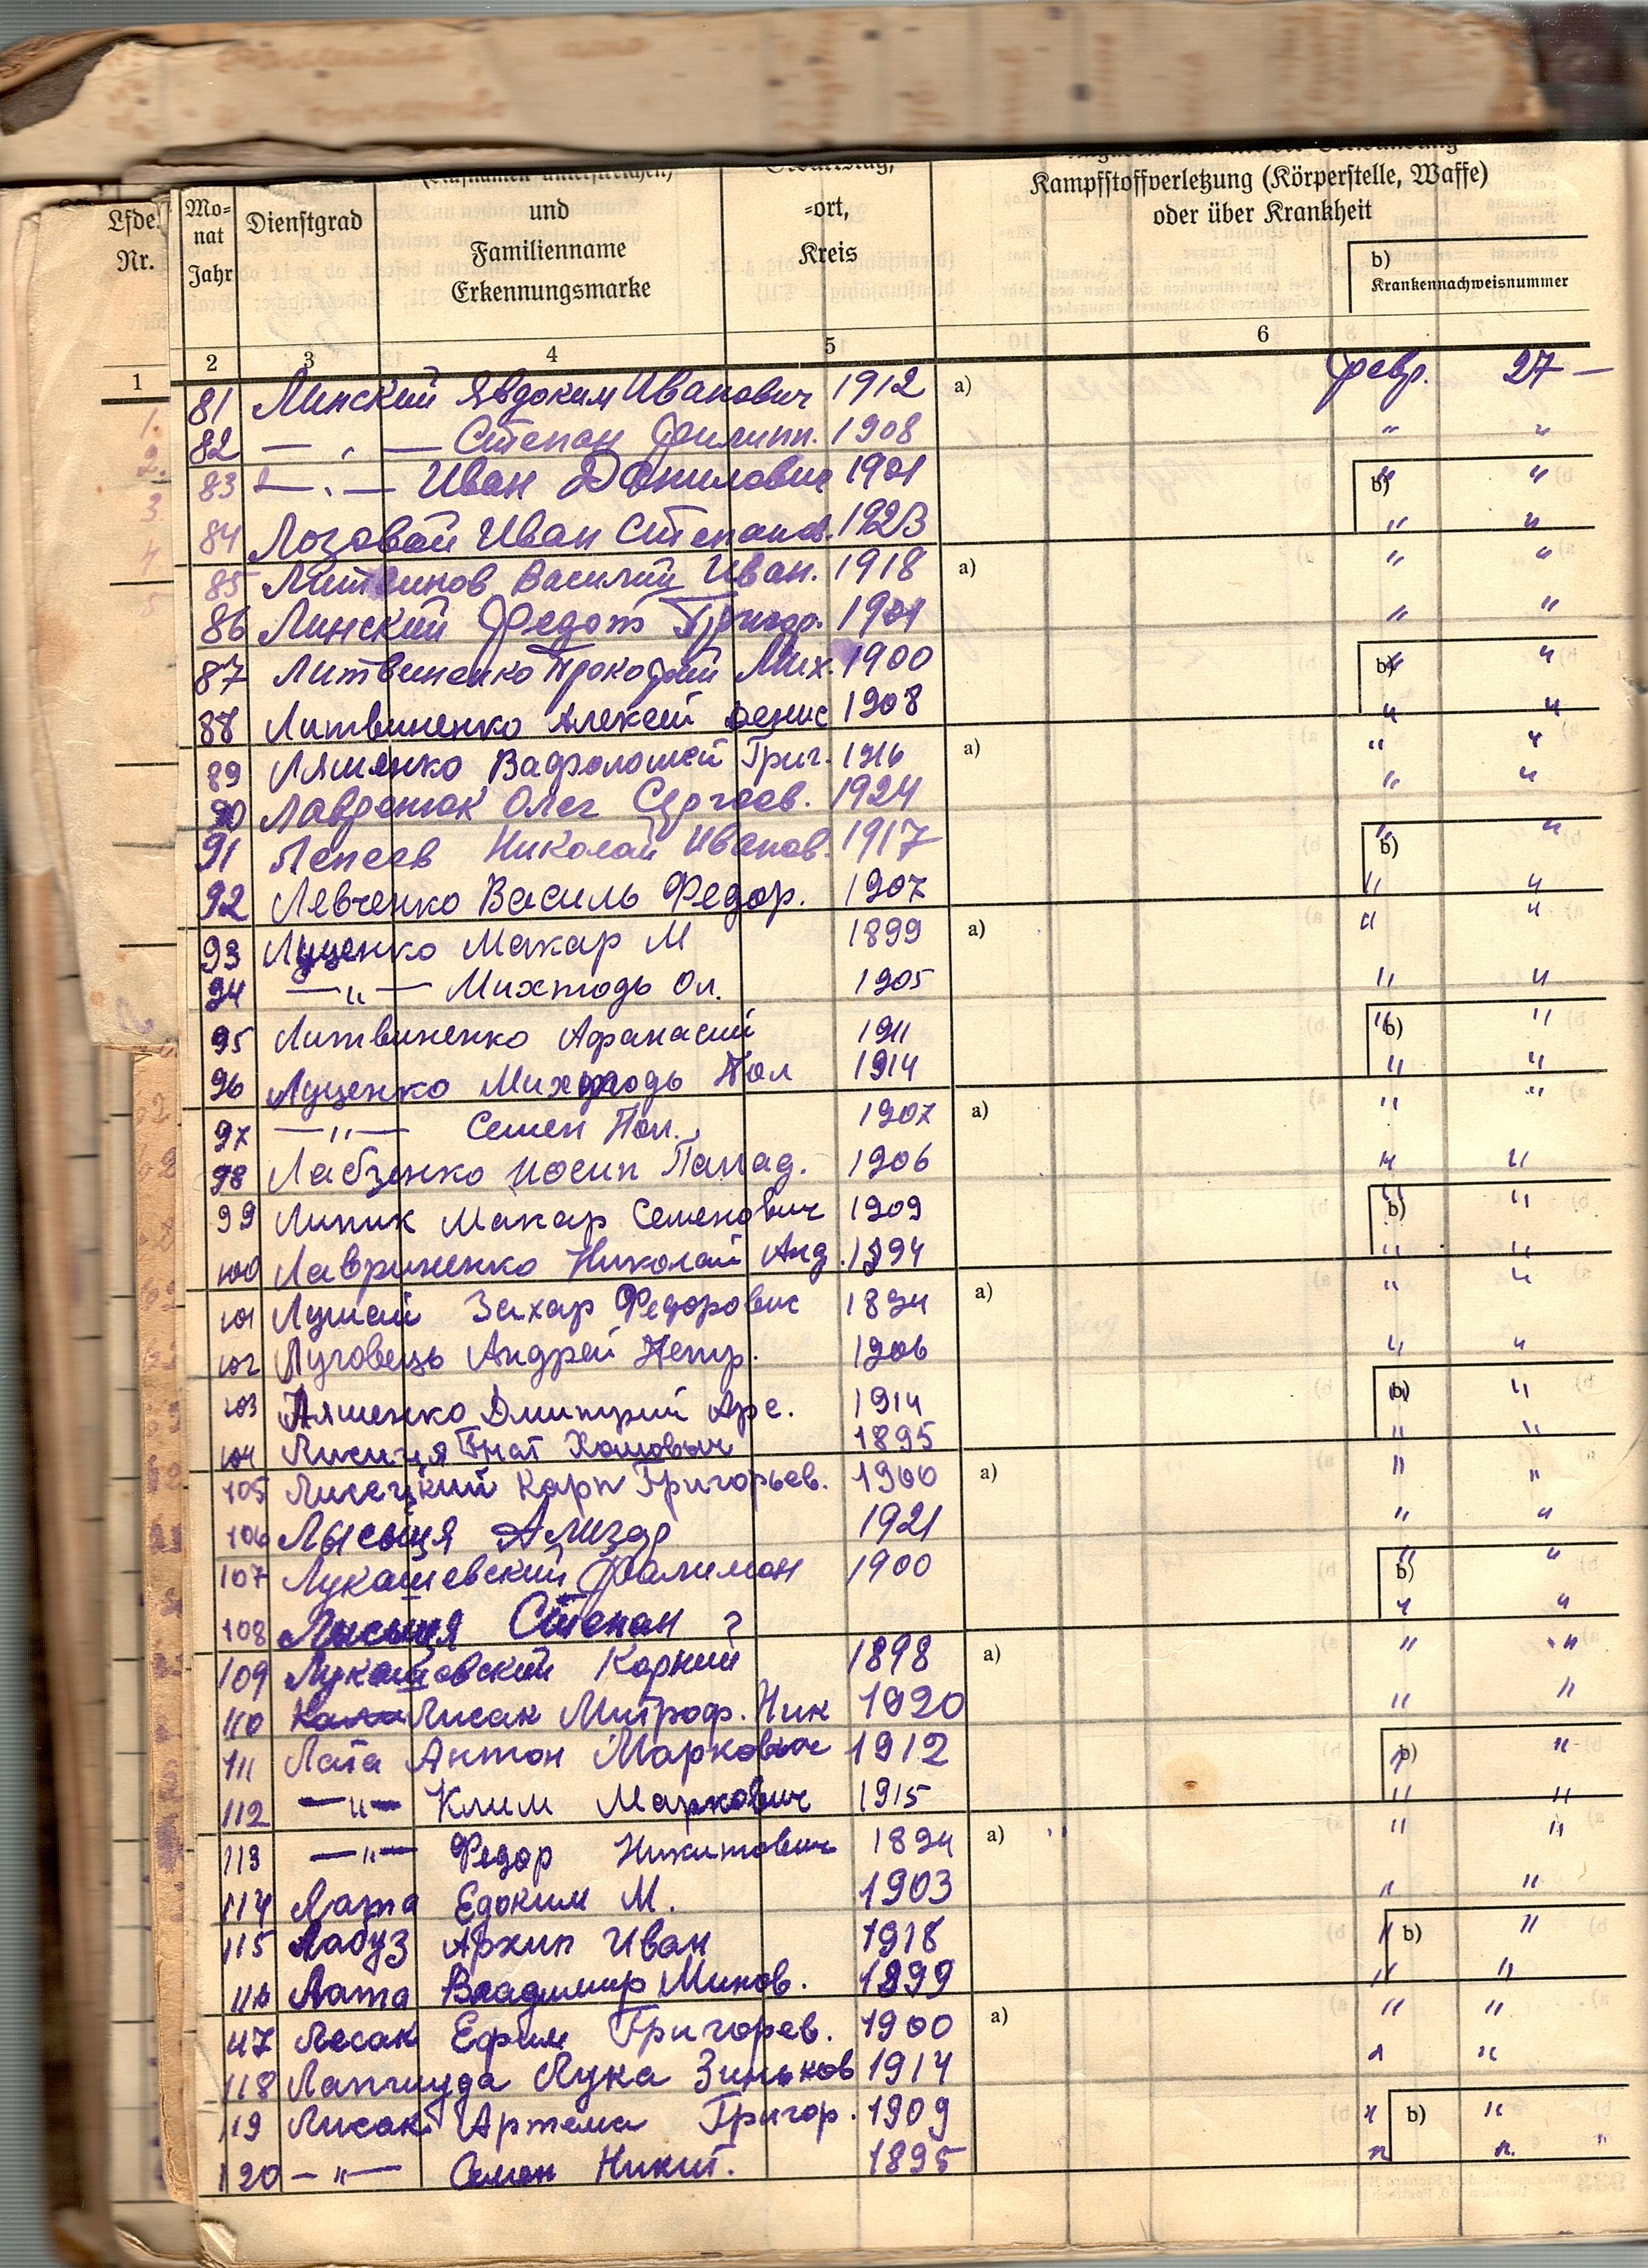 Lfde. Nr.
Mo-nat Jahr
Dienstgrad
und Familienname Erkennungsmarke
-ort, Kreis
Kampfstoffverletzung (Körperstelle, Waffe)
oder über Krankheit
b)
Krankennachweisnummer
1 2 3 4 5 6
81 Линский Явдоким Иванович 1912 a) февр. 27 —
82 — „ — Степан Филипп. 1908 " "
83 — „ — Иван Данилович 1901 b) " "
84 Лозовой Иван Степанов. 1923 " "
85 Литвинов Василий Иван. 1918 a) " "
86 Линский Федот Григор. 1901 " "
87 Литвиненко Прокофий Мих. 1900 b) " "
88 Литвиненко Алексей Денис 1908 " "
89 Ляшенко Вафоломей Григ. 1916 a) " "
90 Лавренюк Олег Сергеев. 1924 " "
91 Лепеев Николай Иванов. 1917 b) " "
92 Левченко Василь Федор. 1907 " "
93 Луценко Макар М 1899 a) " "
94 — " — Ол. 1905 " "
95 Литвиненко Афанасий 1911 b) " "
96 Луценко Пол 1914 " "
97 — " — Семен Пол. 1907 a) " "
98 Лабзенко Иосип Панад. 1906 " "
99 Липик Макар Семенович 1909 b) " "
100 Лавриненко Николай Анд. 1894 " "
101 Захар Федорович 1894 a) " "
102 Луговець Андрей Петр. 1906 " "
103 Ляшенко Дмитрий Арс. 1914 b) " "
104 Лисиця Гнат 1895 " "
105 Лисецкий Карп Григорьев. 1900 a) " "
106 Лысыця Ализар 1921 " "
107 Лукашевский Фалимон 1900 b) " "
108 Лысыця Степан ? " "
109 Лукашевский Корний 1898 a) " "
110 Лисак Митроф. Ник 1920 " "
111 Лата Антон Маркович 1912 b) " "
112 — " — Клим Маркович 1915 " "
113 — " — Федор Никитович 1894 a) " "
114 Лата Едоким М. 1903 " "
115 Лабуз Архип Иван 1918 b) " "
116 Лата Владимир Минов. 1899 " "
117 Лесак Ефим Григорев. 1900 a) " "
118 Лапчиуда Лука Зиньков 1914 " "
119 Лисак Артема Григор. 1909 b) " "
120 — " — Семен Никит. 1895 " "